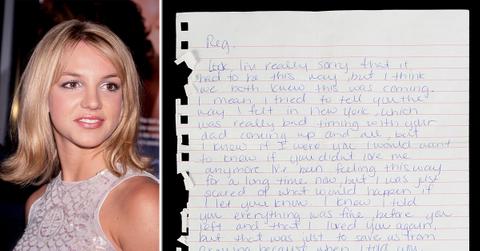 Reg.
Look, I'm really sorry that it
had to be this way, but I think
we both knew this was coming.
I mean, I tried to tell you the
way I felt in New York, which
was really bad timing with your
dad coming up and all, but
I know if I were you I would want
to know if you didn't love me
anymore. I've been feeling this way
for a long time now, but I was just
scared of what would happen if
I let you know. I know I told
you everything was fine before you
left and that I loved you again,
but that was just to save us from
because when I told you